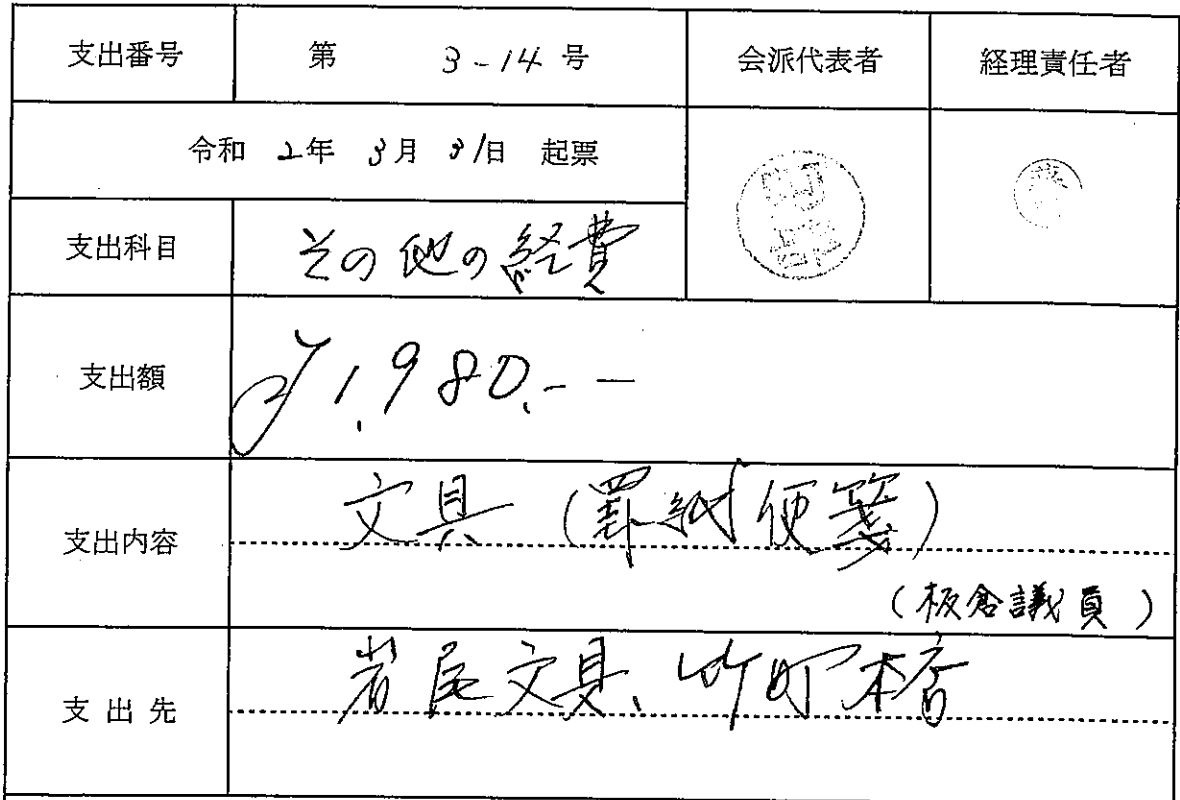 支出番号 第 3-14 号 会派代表者 経理責任者
令和 2年 3月 31日 起票
支出科目 その他の経費
支出額 ¥1,980.--
支出内容 文具 (罫紙便箋)
(板倉議員)
支出先 岩尾文具、竹町本店